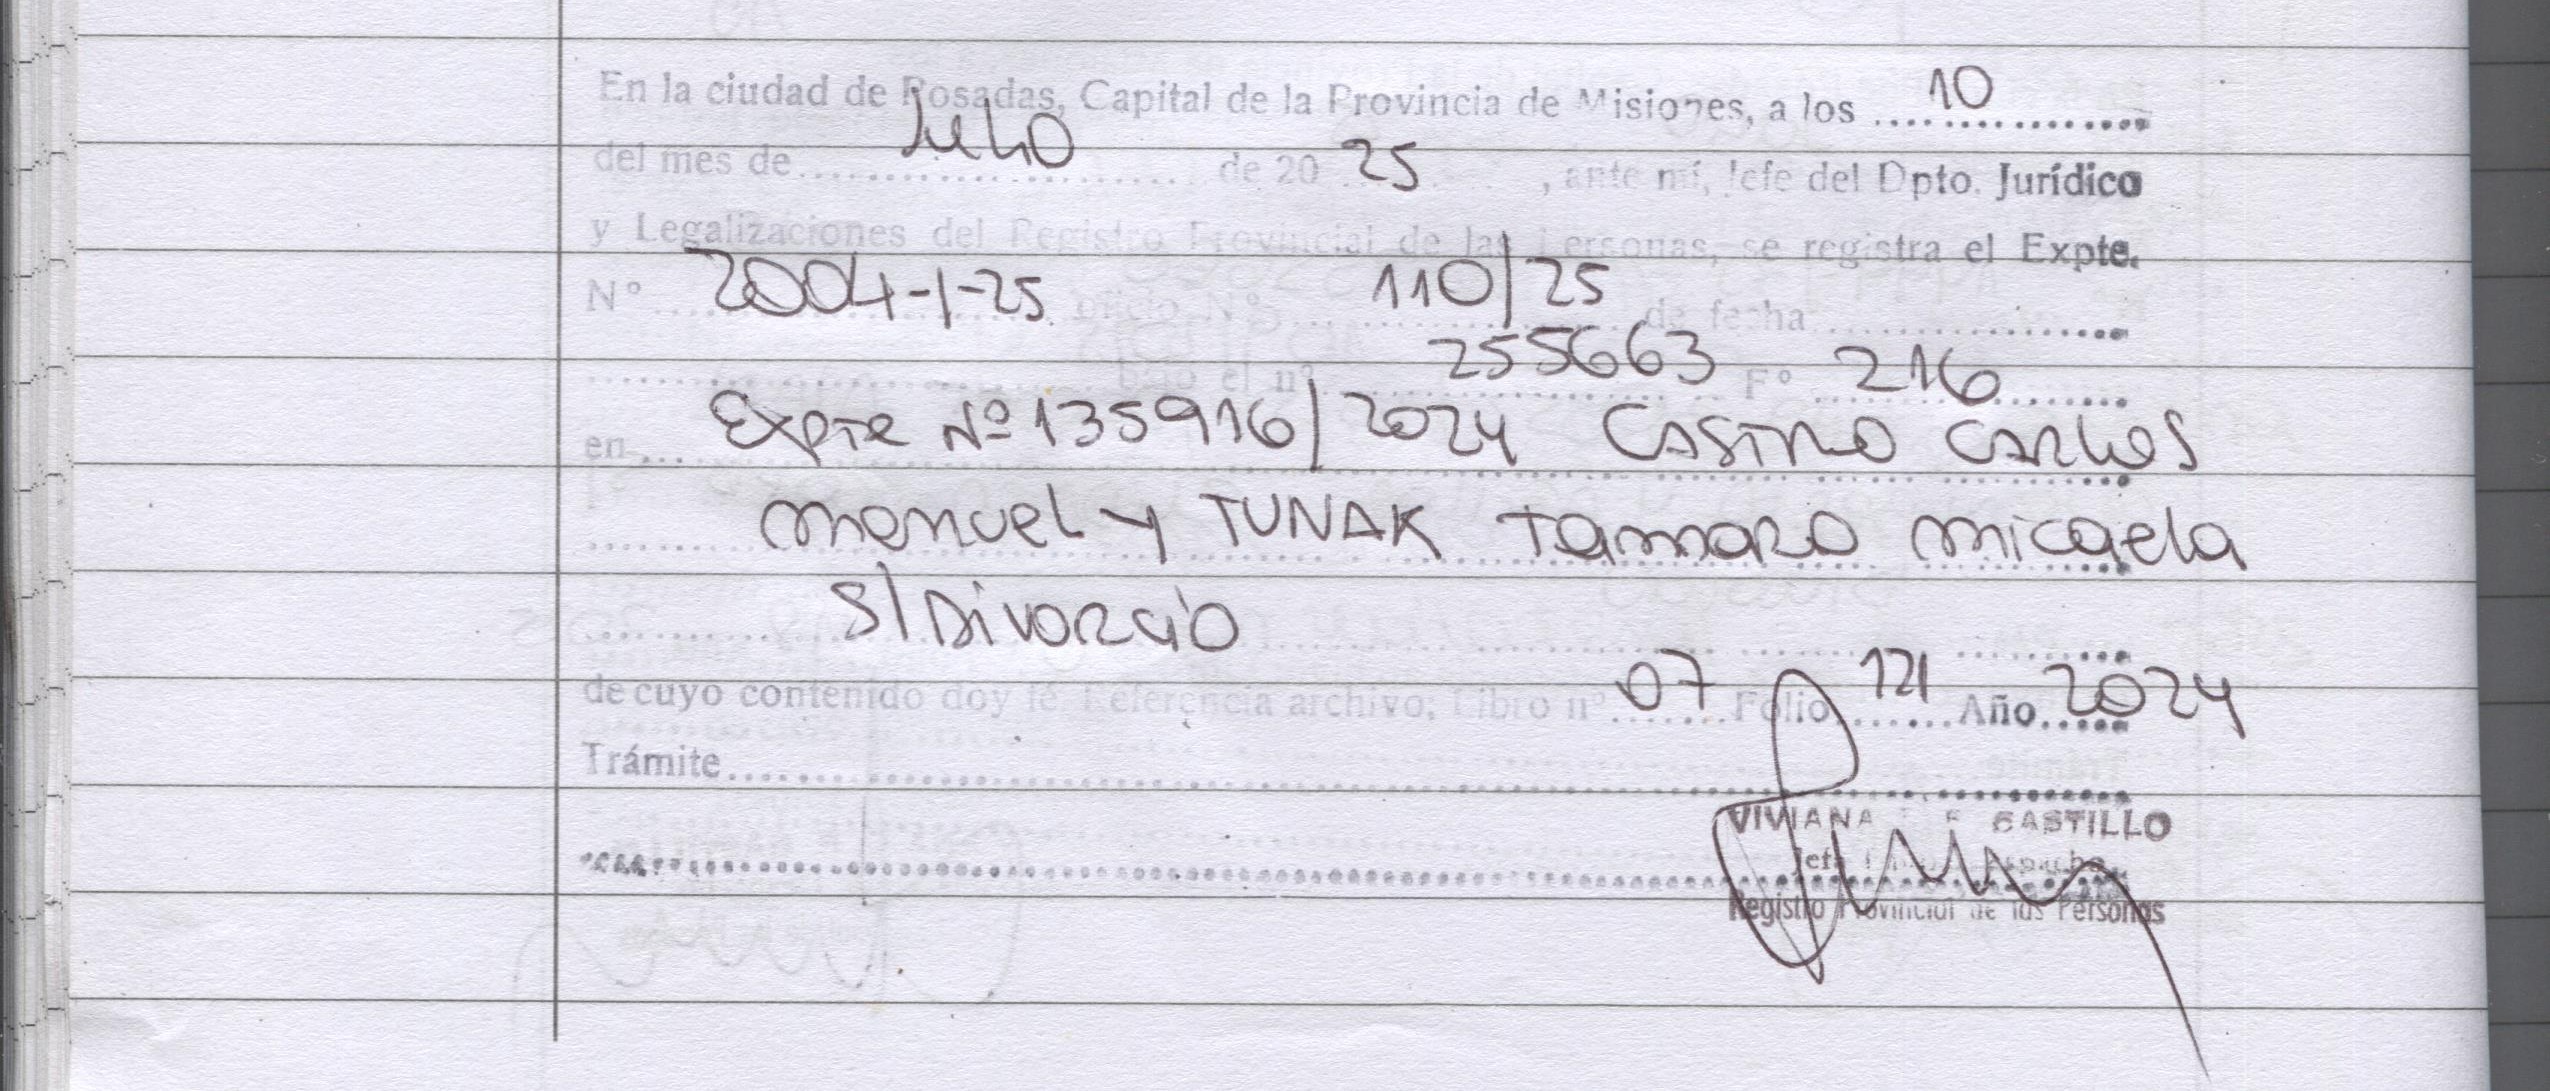 En la ciudad de Posadas, Capital de la Provincia de Misiones, a los 10
del mes de Julio de 20 25, ante mí, Jefe del Dpto. Jurídico
y Legalizaciones del Registro Provincial de las Personas, se registra el Expte.
Nº 2004-1-25 oficio Nº 110/25 de fecha
bajo el nº 255663 Fº 216
en Expte Nº 135916/2024 CASTRO CARLOS
Manuel y TUNAK Tamara Micaela
S/Divorcio
de cuyo contenido doy fé. Referencia archivo: Libro nº 07 Folio 121 Año 2024
Trámite
VIVIANA CASTILLO
Jefa
Registro Provincial de las Personas